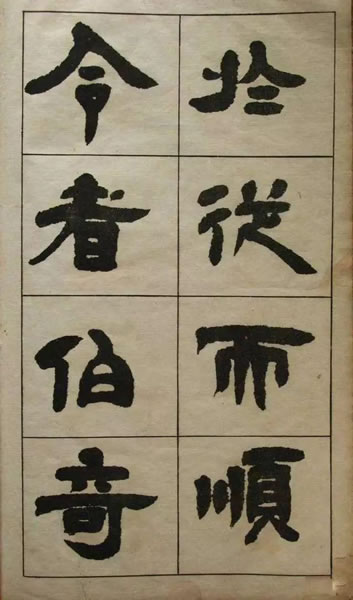 於從而順
令者伯奇